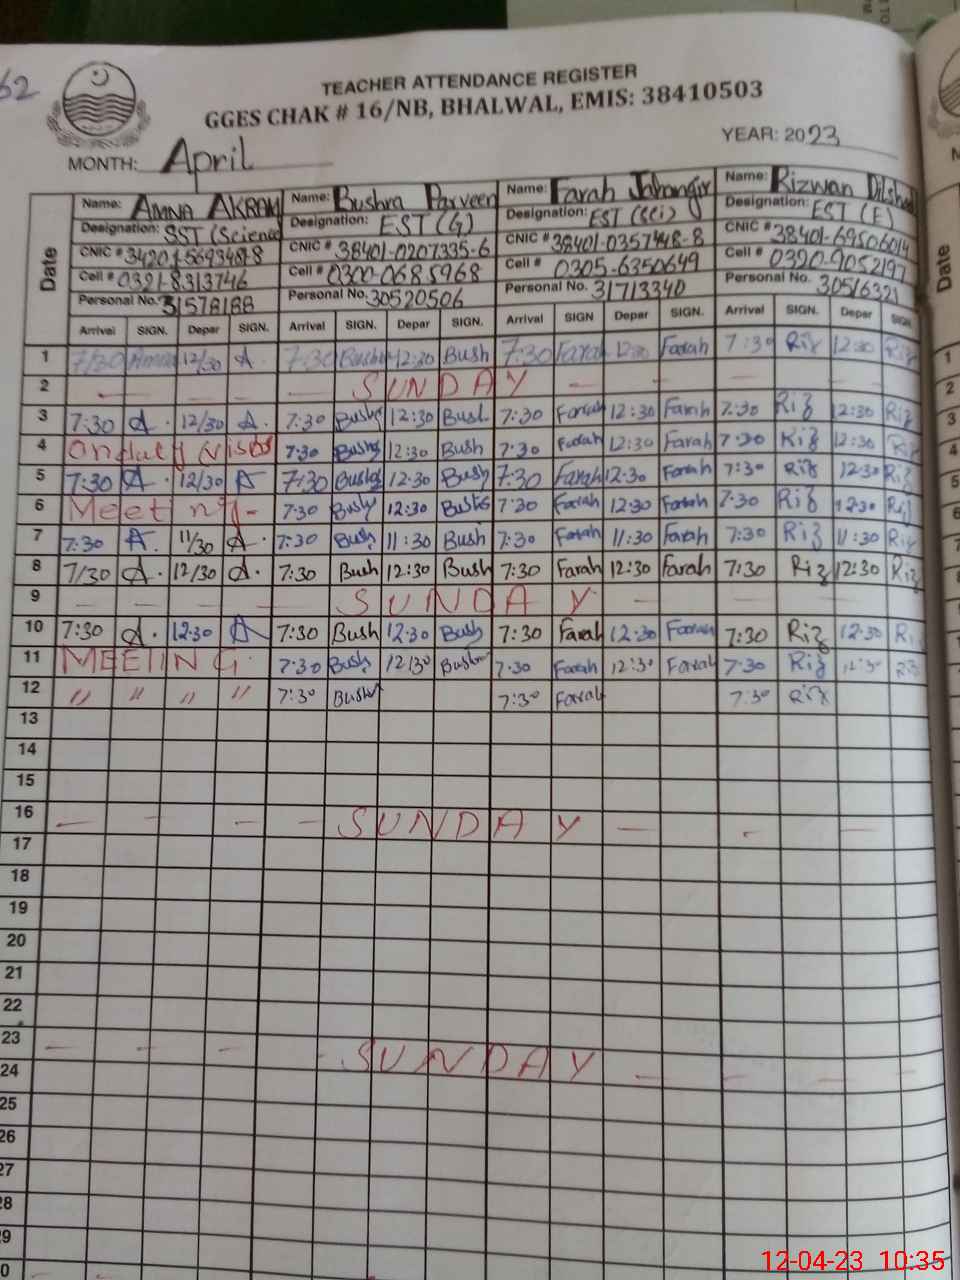 62
TEACHER ATTENDANCE REGISTER
GGES CHAK # 16/NB, BHALWAL, EMIS: 38410503
MONTH: April YEAR: 2023
Date Name: AMNA AKRAM Name: Bushra Parveen Name: Farah Jahangir Name: Rizwan Dilshad
Designation: SST (Science Designation: EST (G) Designation: EST (Sci) Designation: EST (E)
CNIC # CNIC # 38401-0207335-6 CNIC # 38401-0357448-8 CNIC # 38401-6950601
Cell # 0321-8313746 Cell # 0300-0685968 Cell # 0305-6350649 Cell # 0320-9052197
Personal No. 31578188 Personal No. 30520506 Personal No. 31713340 Personal No. 30516321
Arrival SIGN. Depar SIGN. Arrival SIGN. Depar SIGN. Arrival SIGN Depar SIGN. Arrival SIGN. Depar SIGN
1 7/30 Amna 12/30 A. 7:30 Bush 12:30 Bush 7:30 Farah 12:30 Farah 7:30 Riz 12:30 Riz
2 — — — SUNDAY — — — —
3 7:30 A. 12/30 A. 7:30 Bush 12:30 Bush 7:30 Farah 12:30 Farah 7:30 Riz 12:30 Riz
4 Onduty 7:30 Bush 12:30 Bush 7:30 Farah 12:30 Farah 7:30 Riz 12:30 Riz
5 7:30 A. 12/30 A 7:30 Bush 12:30 Bush 7:30 Farah 12:30 Farah 7:30 Riz 12:30 Riz
6 Meeting - 7:30 Bush 12:30 Bush 7:30 Farah 12:30 Farah 7:30 Riz 12:30 Riz
7 7:30 A. 11/30 A. 7:30 Bush 11:30 Bush 7:30 Farah 11:30 Farah 7:30 Riz 11:30 Riz
8 7/30 A. 12/30 A. 7:30 Bush 12:30 Bush 7:30 Farah 12:30 Farah 7:30 Riz 12:30 Riz
9 — — — — SUNDAY — — —
10 7:30 A. 12:30 A 7:30 Bush 12:30 Bush 7:30 Farah 12:30 Farah 7:30 Riz 12:30 Ri
11 MEETING 7:30 Bush 12/30 Bush 7:30 Farah 12:30 Farah 7:30 Riz 12:30 Riz
12 " " " " 7:30 Bush 7:30 Farah 7:30 Riz
13
14
15
16 — — — — SUNDAY — — —
17
18
19
20
21
22
23 — — — — SUNDAY — — — —
24
25
26
27
28
29
0
Date
1
2
3
4
5
6
7
8
12-04-23 10:35